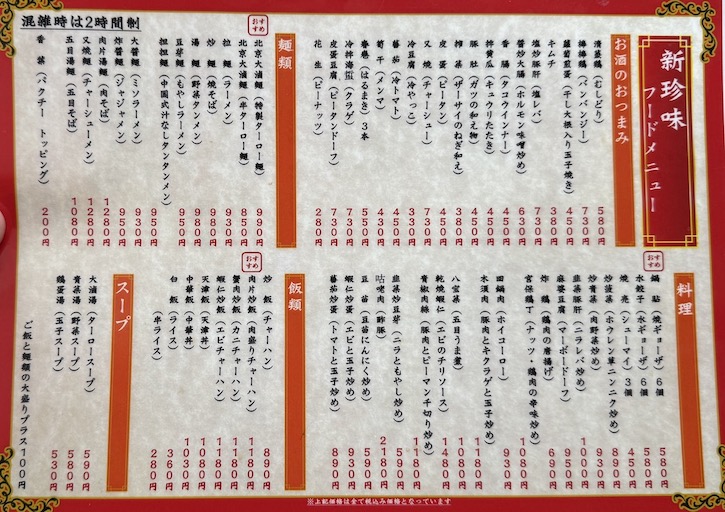 新珍味
フードメニュー
お酒のおつまみ
清蒸鶏（むしどり） 580円
棒棒鶏（バンバンジー） 730円
蘿蔔煎蛋（干し大根入り玉子焼き） 450円
キムチ 380円
塩炒豚肝（塩レバ） 730円
醤炒大腸（ホルモン味噌炒め） 630円
香腸（タコウインナー） 450円
拌黄瓜（キュウリたたき） 450円
豚肚（ガツの和え物） 580円
搾菜（ザーサイのねぎ和え） 380円
皮蛋（ピータン） 450円
叉焼（チャーシュー） 730円
冷豆腐（冷やっこ） 330円
蕃茄（冷トマト） 430円
筍干（メンマ） 450円
春巻（はるまき）3本 550円
冷拌海蜇（クラゲ） 730円
皮蛋豆腐（ピータンドーフ） 730円
花生（ピーナッツ） 280円
麺類
おすすめ
北京大滷麺（特製ターロー麺） 990円
北京大滷麺（半ターロー麺） 850円
拉麺（ラーメン） 900円
炒麺（焼そば） 980円
湯麺（野菜タンメン） 980円
豆芽麺（もやしラーメン） 950円
担担麺（中国式汁なしタンタンメン） 950円
大醤麺（ミソラーメン） 950円
炸醤麺（ジャジャメン） 950円
肉片湯麺（肉そば） 1280円
叉焼麺（チャーシューメン） 1280円
五目湯麺（五目そば） 1080円
香菜（パクチー トッピング） 200円
混雑時は2時間制
料理
おすすめ
鍋貼（焼ギョーザ）6個 580円
水餃子（水ギョーザ）6個 580円
焼売（シューマイ）3個 450円
炒菠菜（ホウレン草ニンニク炒め） 890円
炒青菜（肉野菜炒め） 980円
韮菜豚肝（ニラレバ炒め） 1000円
麻婆豆腐（マーボードーフ） 950円
炸鶏（鶏肉の唐揚げ） 690円
宮保鶏丁（ナッツ・鶏肉の辛味炒め） 1080円
回鍋肉（ホイコーロー） 930円
木須肉（豚肉とキクラゲと玉子炒め） 1180円
八宝菜（五目うま煮） 1080円
乾焼蝦仁（エビのチリソース） 1480円
青椒肉絲（豚肉とピーマン千切り炒め） 1180円
韮菜炒豆芽（ニラともやし炒め） 550円
咕咾肉（酢豚） 2180円
豆苗（豆苗にんにく炒め） 980円
蝦仁炒蛋（エビと玉子炒め） 930円
蕃茄炒蛋（トマトと玉子炒め） 890円
飯類
おすすめ
炒飯（チャーハン） 890円
肉片炒飯（肉盛りチャーハン） 1180円
蟹肉炒飯（カニチャーハン） 1180円
蝦仁炒飯（エビチャーハン） 1180円
天津飯（天津丼） 1080円
中華飯（中華丼） 1030円
白飯（ライス） 360円
（半ライス） 280円
スープ
大滷湯（ターロースープ） 590円
青菜湯（野菜スープ） 580円
鶏蛋湯（玉子スープ） 530円
ご飯と麺類の大盛りプラス100円
※上記価格は全て税込み価格となっています